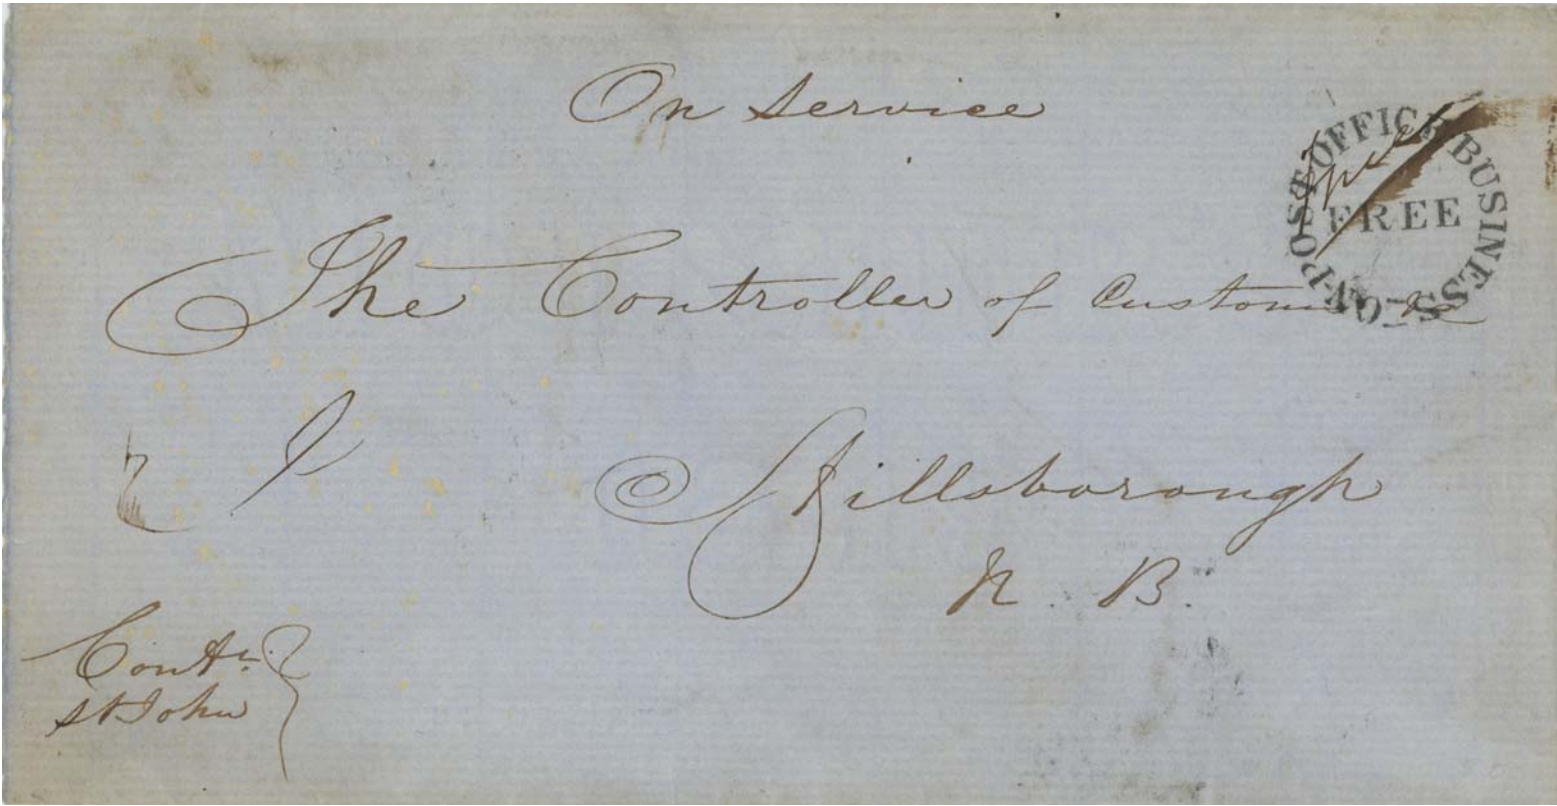 On Service
POST OFFICE BUSINESS
FREE
The Controller of Customs &c
Hillsborough
N. B.
Contr.
St John